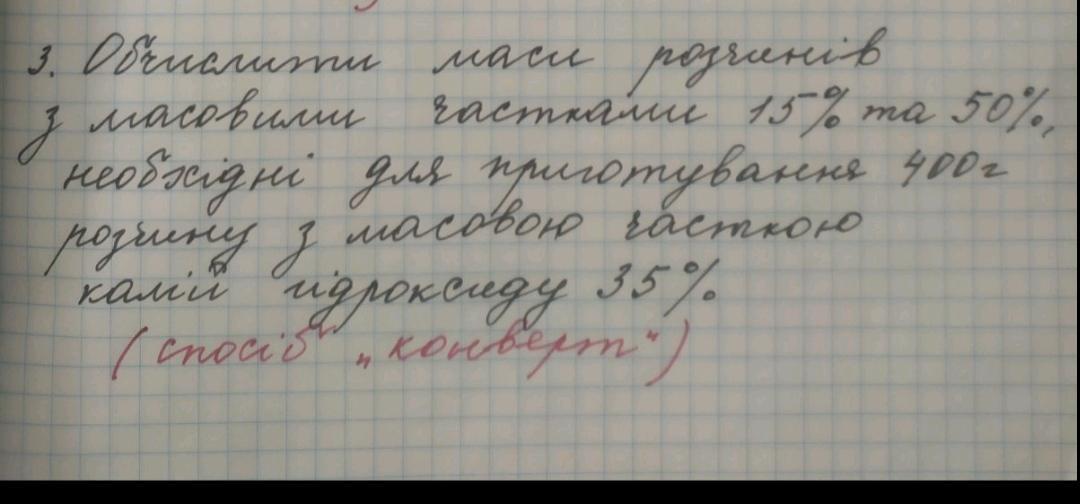 3. Обчислити маси розчинів
з масовими частками 15% та 50%,
необхідні для приготування 400г
розчину з масовою часткою
калій гідроксиду 35%
(спосіб „конверт")